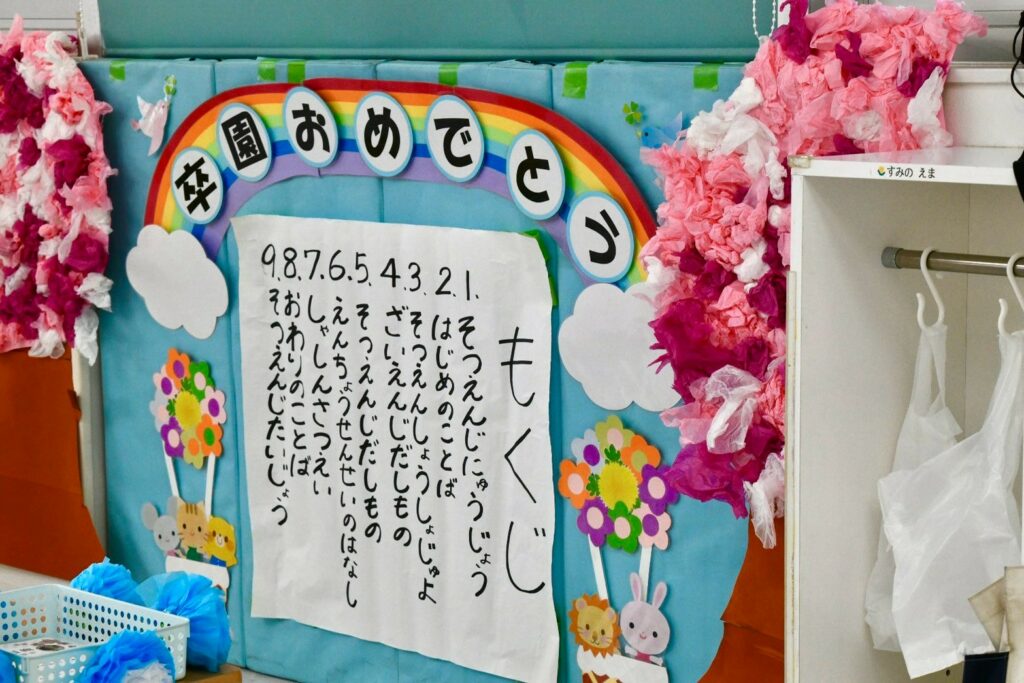 卒園おめでとう
もくじ
1. そつえんじにゅうじょう
2. はじめのことば
3. そつえんしょうしょじゅよ
4. ざいえんじだしもの
5. そつえんじだしもの
6. えんちょうせんせいのはなし
7. しゃしんさつえい
8. おわりのことば
9. そつえんじたいじょう
すみの えま